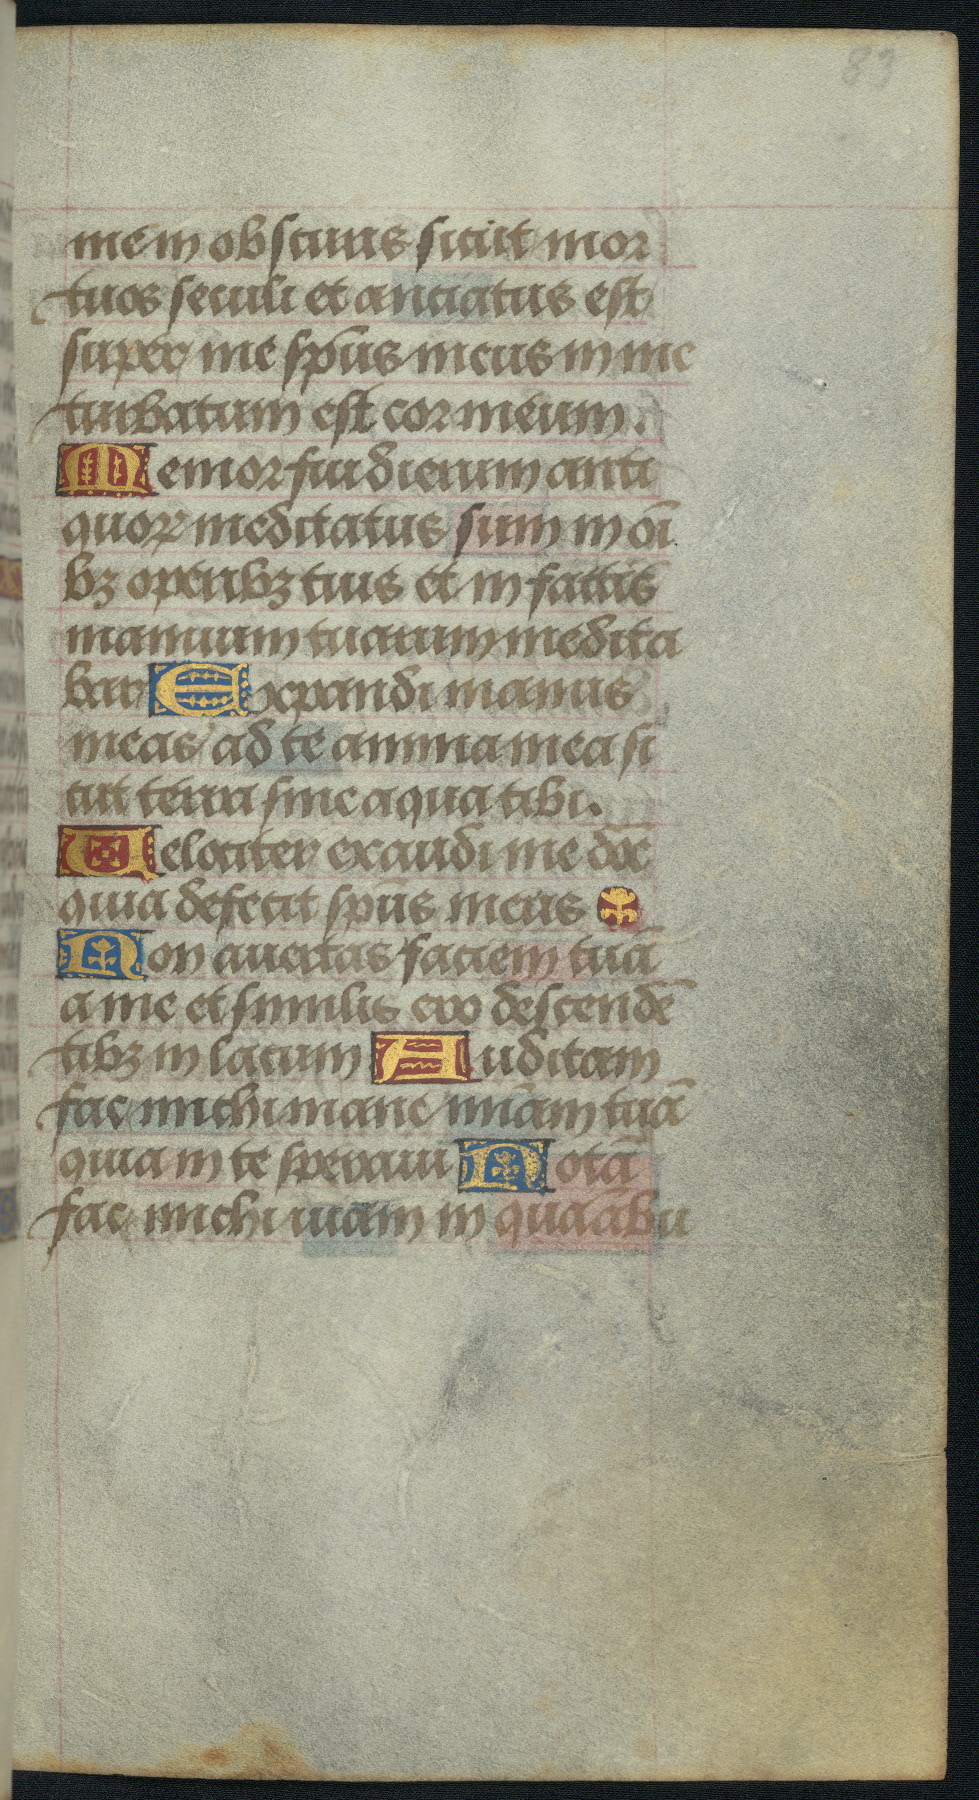 83
me in obscuris sicut mor
tuos seculi et anciatus est
super me sp̄us meus in me
turbatum est cor meum.
Memor fui dierum anti
quoꝝ meditatus sum in oī
bꝫ operibꝫ tuis et in factis
manuum tuarum medita
bar Expandi manus
meas ad te anima mea si
cut terra sine aqua tibi.
Velociter exaudi me dn̄e
quia defecit sp̄us meus
Non auertas faciem tuā
a me et similis ero descendē
tibꝫ in lacum Auditam
fac michi mane mīam tuā
quia in te speraui Notā
fac michi uiam in qua ābu